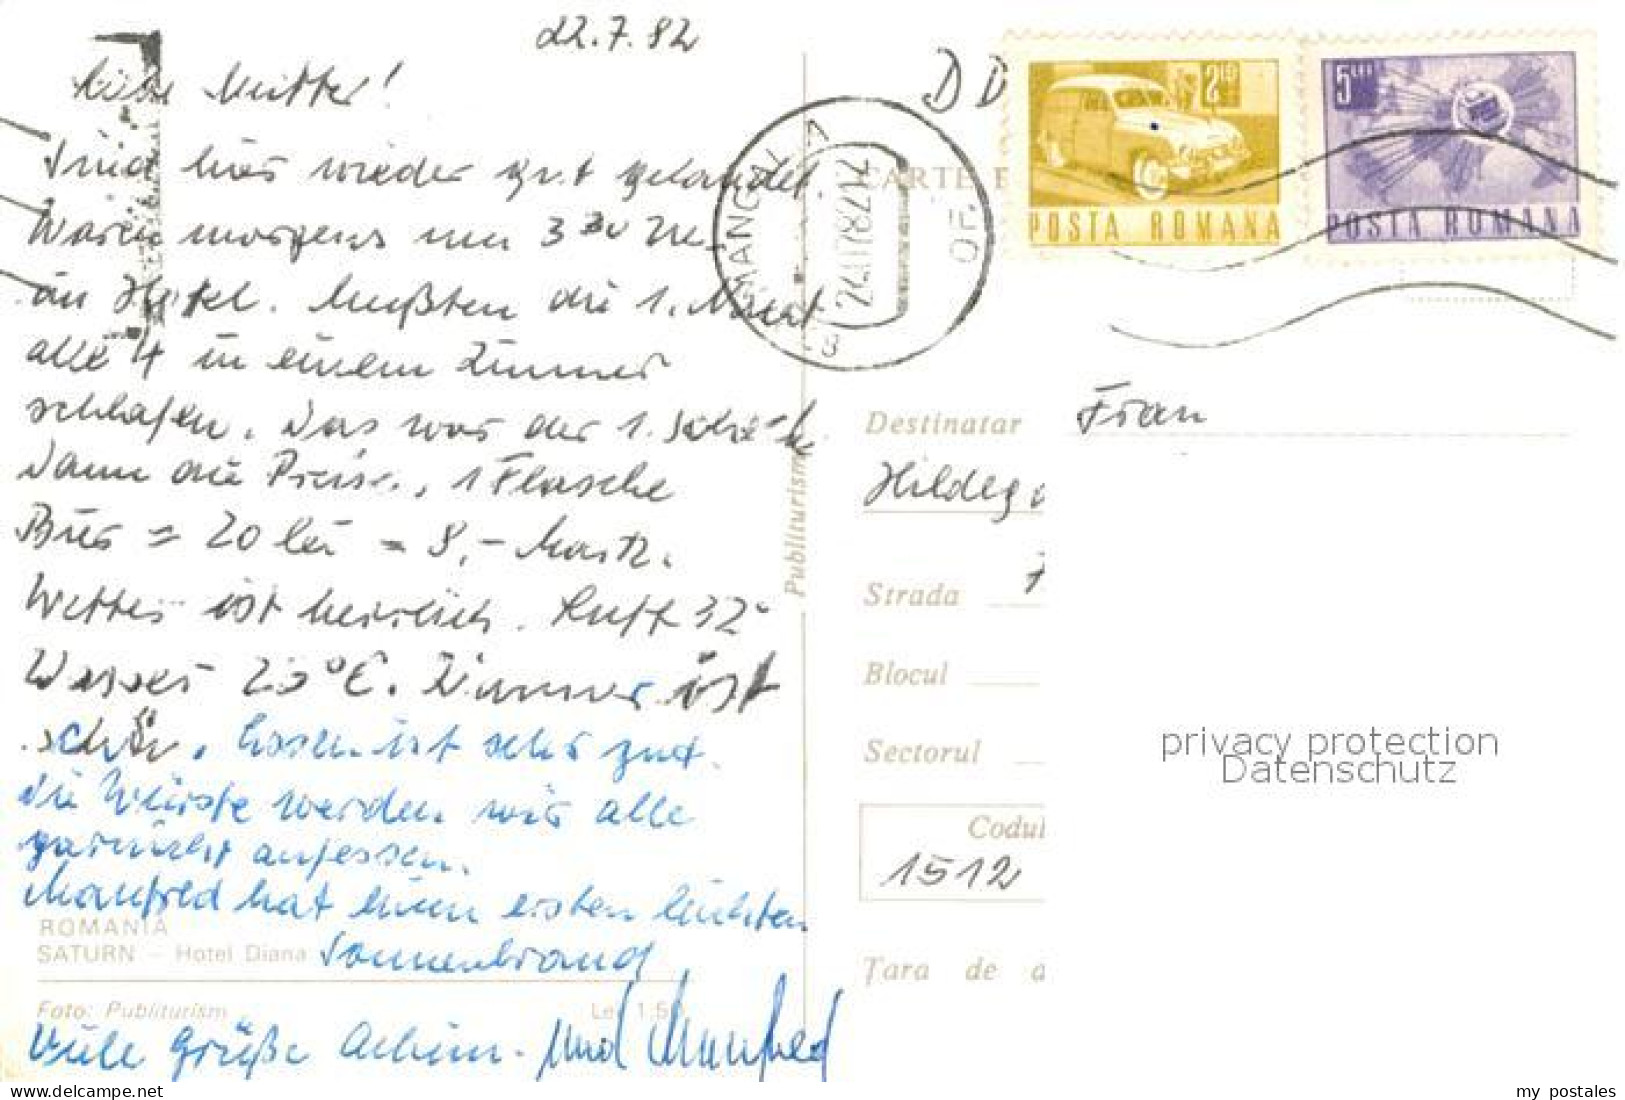 22.7.82
Liebe Mutter!
Sind hier wieder gut gelandet.
Waren morgens um 3 30 Uhr
im Hotel. Mußten die 1. Nacht
alle 4 in einem Zimmer
schlafen. Das war der 1. Schock
Dann die Preise, 1 Flasche
Bier = 20 lei = 8,- Mark.
Wetter ist herrlich. Luft 32°
Wasser 20°C. Zimmer ist
schön. Essen ist sehr gut.
die Würste werden wir alle
garnicht aufessen.
Manfred hat einen ersten leichten
Sonnenbrand
ROMANIA
SATURN – Hotel Diana
Foto: Publiturism
Lei 1,50
Viele Grüße Achim. und Manfred
Publiturism
DD
CARTE P
MANGAL
OF.
2LEI
POSTA ROMANA
5LEI
POSTA ROMANA
Destinatar Frau
Hildeg
Strada
Blocul
Sectorul
Codul
1512
Țara de d
privacy protection
Datenschutz
my postales